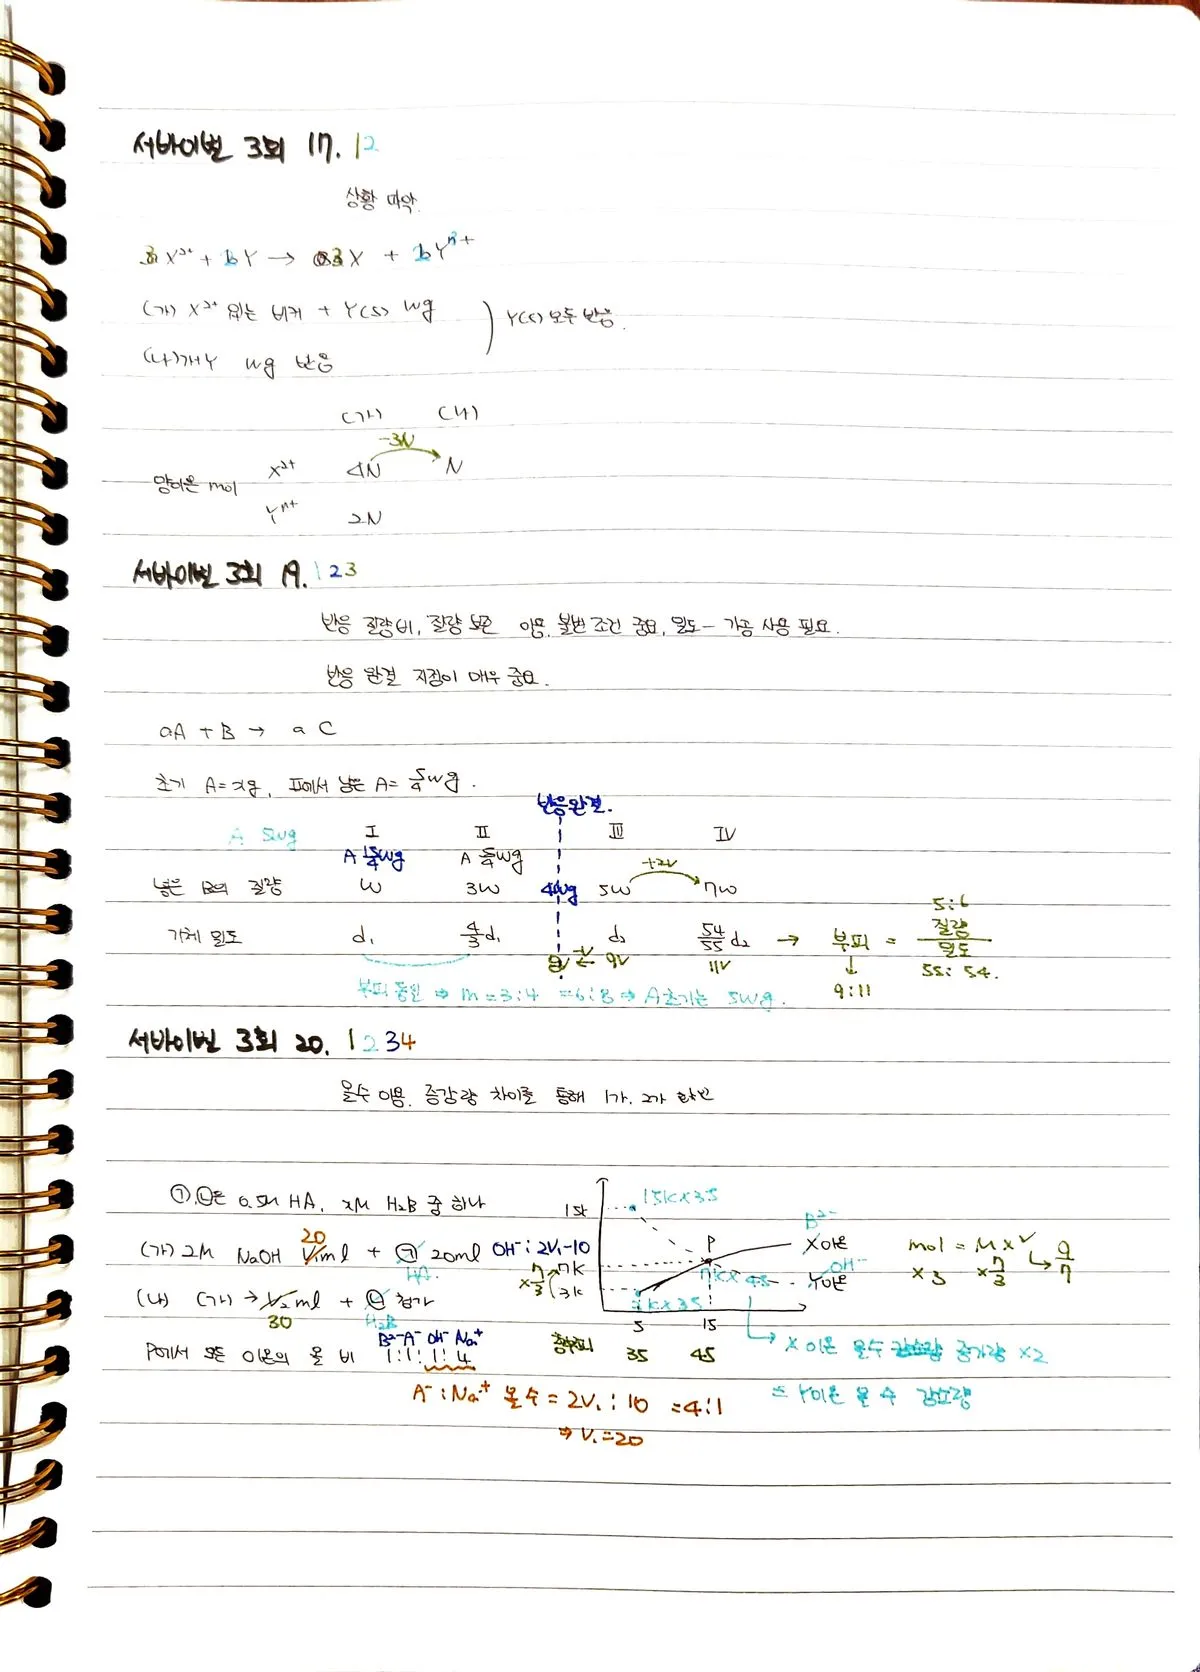 서바이벌 3회 17. 12
상황 파악.
3X²⁺ + bY → 3X + bYⁿ⁺
(가) X²⁺ 있는 비커 + Y(s) wg
(나) (가)+Y wg 반응
Y(s) 모두 반응.
(가) (나)
-3N
양이온 mol X²⁺ 4N N
Yⁿ⁺ 2N
서바이벌 3회 19. 123
반응 질량비, 질량 보존 이용. 불변 조건 중요, 밀도- 가공 사용 필요.
반응 완결 지점이 매우 중요.
aA + B → a C
초기 A=xg, Ⅱ에서 남은 A= 5/4wg.
반응완결.
A 5wg Ⅰ Ⅱ Ⅲ Ⅳ
A 15/4wg A 5/4wg +2V
넣은 B의 질량 w 3w 4wg 5w 7w
5:6
기체 밀도 d₁ 4/3d₁ d₂ 54/55d₂ → 부피 = 질량/밀도
8V -V ← 9V 11V ↓ 55:54.
부피 동일 ⇒ m=3:4 =6:8 ⇒ A초기는 5wg. 9:11
서바이벌 3회 20. 1234
몰수 이용. 증감량 차이를 통해 1가, 2가 확인
㉠,㉡은 0.5M HA, xM H₂B 중 하나
20
(가) 2M NaOH V₁ml + ㉠ 20ml OH⁻: 2V₁-10
HA.
(나) (가) → V₂ml + ㉡ 첨가
30 H₂B
B²⁻ A⁻ OH⁻ Na⁺
P에서 모든 이온의 몰 비 1:1:1:4
A⁻:Na⁺ 몰수 = 2V₁:10 =4:1
⇒ V₁=20
15k 15k×35
B²⁻
P X이온
7k 7k×45 OH⁻
×7/3 Y이온
3k 3k×35
5 15
총부피 35 45
mol = M × V
×3 ×7/3 9/7
X이온 몰수 증가량 ×2
= Y이온 몰수 감소량